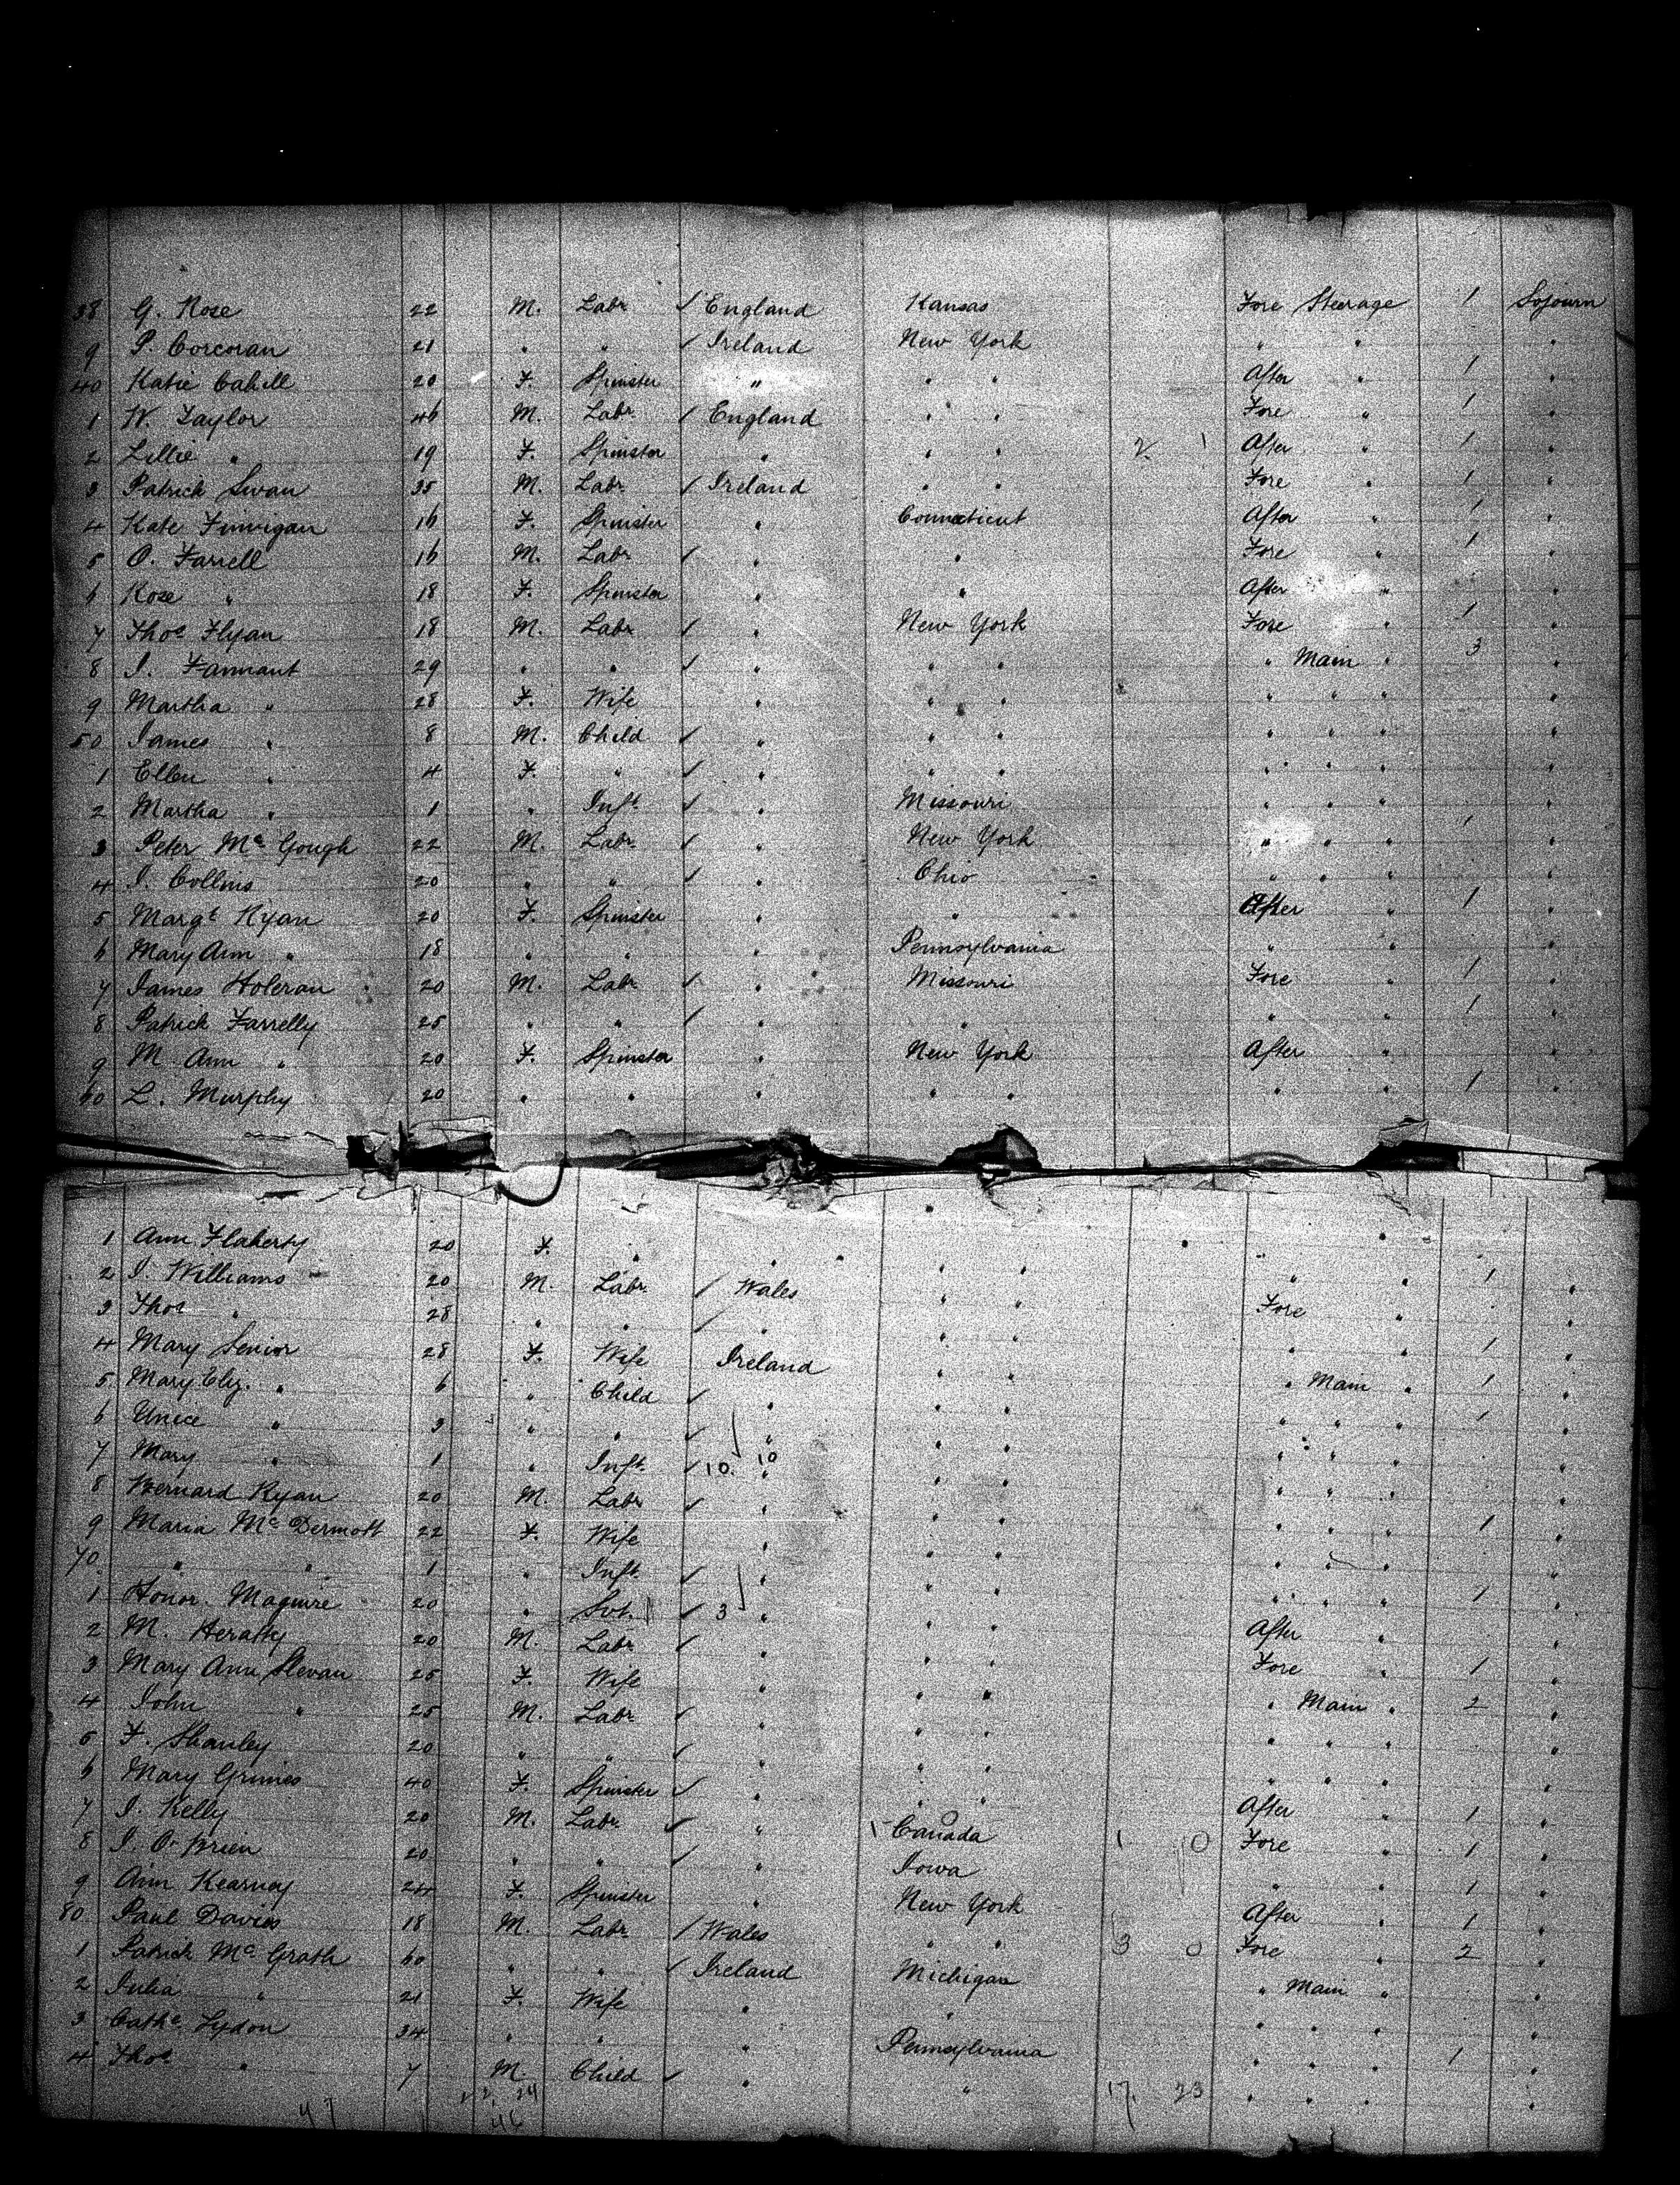 38 G. Rose 22 M. Labr ✓ England Kansas Fore Steerage 1 Sojourn
9 P. Corcoran 21 " " ✓ Ireland New York " " "
40 Katie Cahill 20 F. Spinster " " " After " 1 "
1 W. Taylor 46 M. Labr ✓ England " " Fore " 1 "
2 Lillie " 19 F. Spinster " " " 2 1 After " 1 "
3 Patrick Swan 35 M. Labr ✓ Ireland " " Fore " 1 "
4 Kate Finnigan 16 F. Spinster " Connecticut After " 1 "
5 O. Farrell 16 M. Labr ✓ " " Fore " 1 "
6 Rose " 18 F. Spinster " " After " "
7 Thos Flyan 18 M. Labr ✓ " New York Fore " 1 "
8 J. Fannant 29 " " ✓ " " " " Main " 3 "
9 Martha " 28 F. Wife " " " " " " "
50 James " 8 M. Child ✓ " " " " " " "
1 Ellen " 4 F. " ✓ " " " " " " "
2 Martha " 1 " Inft. ✓ " Missouri " " " "
3 Peter Mc Gough 22 M. Labr ✓ " New York " " " 1 "
4 J. Collins 20 " " ✓ " Ohio " " " "
5 Margt Ryan 20 F. Spinster " " After " 1 "
6 Mary Ann " 18 " " " Pennsylvania " " "
7 James Holeran 20 M. Labr ✓ " Missouri Fore " 1 "
8 Patrick Farrelly 25 " " ✓ " " " " 1 "
9 M. Ann " 20 F. Spinster " New York After " "
60 L. Murphy 20 " " " " " " " 1 "
1 Ann Flaherty 20 F. " " " " " " 1 "
2 J. Williams 20 M. Labr ✓ Wales " " Fore "
3 Thos " 28 " " ✓ " " " " " 1 "
4 Mary Senior 28 F. Wife Ireland " " " Main " 1 "
5 Mary Eliz. " 6 " Child ✓ " " " " " " 1 "
6 Unice " 3 " " ✓ " " " " " "
7 Mary " 1 " Inft. ✓ 10. 10 " " " " " "
8 Bernard Ryan 20 M. Labr ✓ " " " " " " 1 "
9 Maria Mc Dermott 22 F. Wife " " " " " " "
70 " " 1 " Inft. ✓ " " " " " " 1 "
1 Honor. Maguire 20 " Svt. ✓ 3 " " " After " "
2 M. Heratty 20 M. Labr ✓ " " " Fore " 1 "
3 Mary Ann Slevan 25 F. Wife " " " " Main " 2 "
4 John " 25 M. Labr ✓ " " " " " " "
5 F. Shanley 20 " " ✓ " " " " " " "
6 Mary Grimes 40 F. Spinster ✓ " " " After " 1 "
7 J. Kelly 20 M. Labr ✓ " Canada 1 0 Fore " 1 "
8 J. O'Brien 20 " " ✓ " Iowa " " 1 "
9 Ann Kearney 24 F. Spinster " New York After " 1 "
80 Paul Davies 18 M. Labr ✓ Wales " " 3 0 Fore " 2 "
1 Patrick Mc Grath 60 " " ✓ Ireland Michigan " Main " "
2 Julia " 21 F. Wife " " " " " "
3 Cathe Lydon 34 " " " Pennsylvania " " " 1 "
4 Thos " 7 M. Child ✓ " " 17. 23 " " " "
47 1 2 24
46